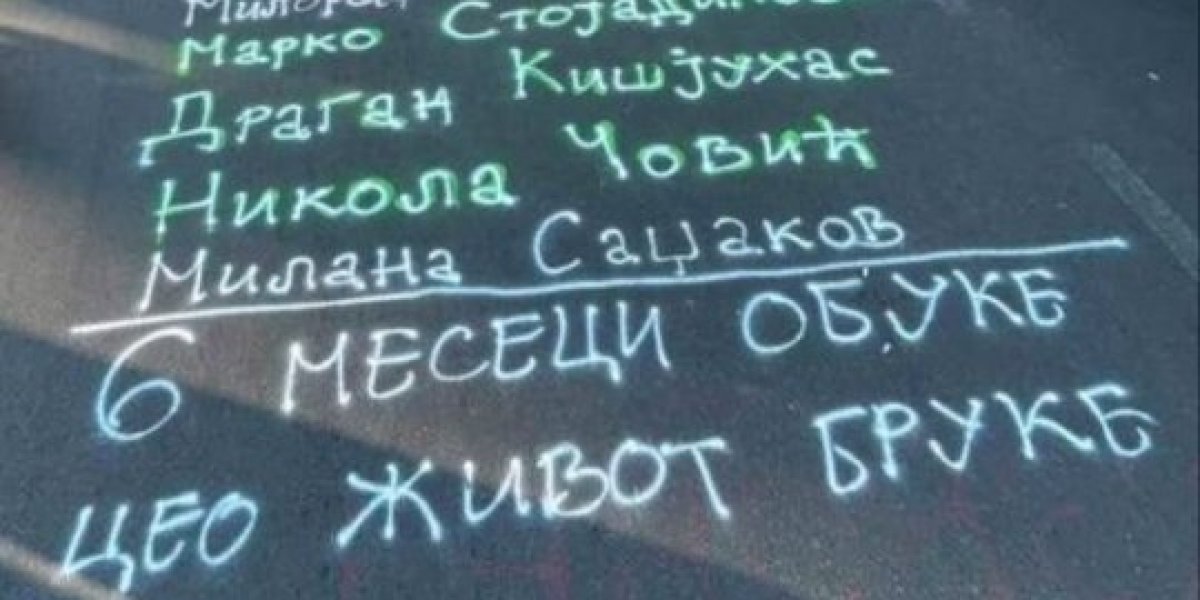 Марко
Драган Кишјухас
Никола Човић
Милана Саџаков
6 МЕСЕЦИ ОБУКЕ
ЦЕО ЖИВОТ БРУКЕ